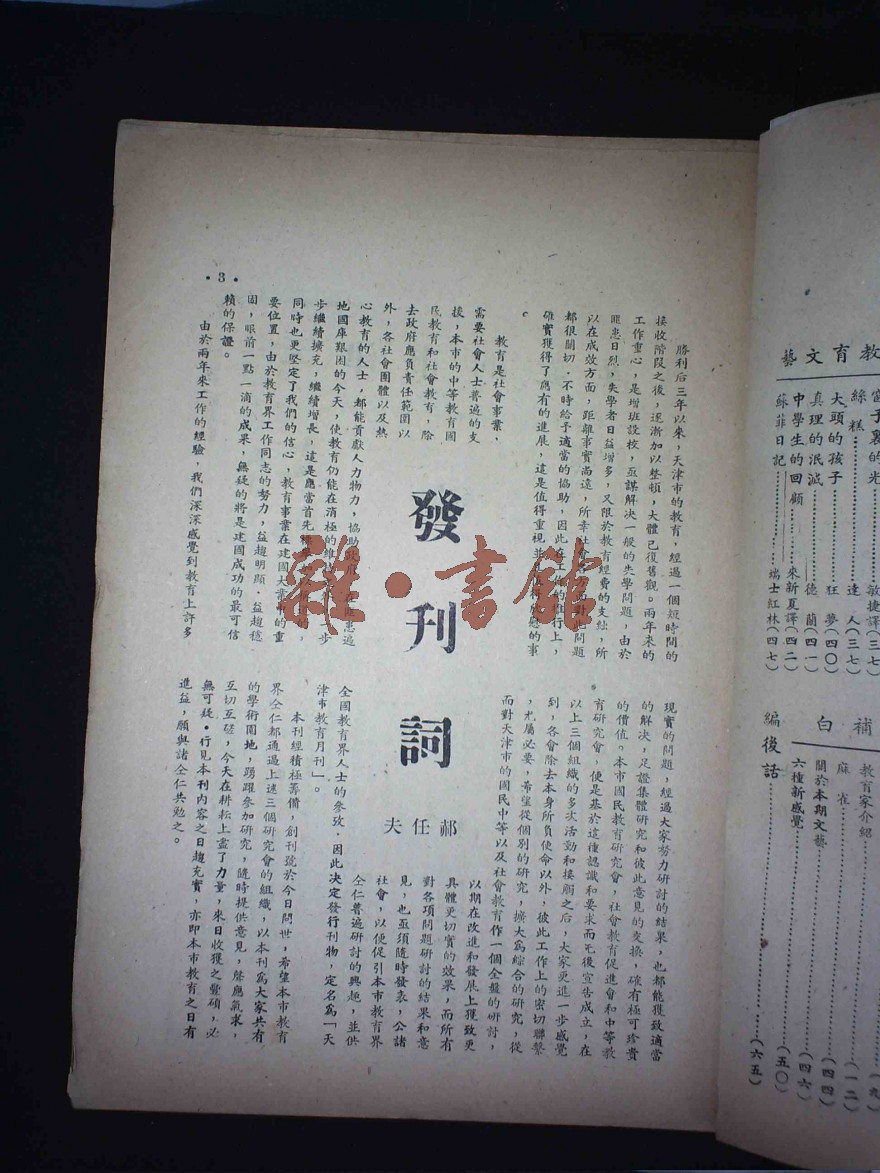 教育文藝
當子裏的光……敏捷譯(三七)
絲糕……達人(三七)
大頭的孩子……狂夢(四〇)
真理的泯滅……德蘭(四一)
中學生的回顧……來新夏譯(四二)
蘇菲日記……瑞士紅林(四七)
補白
教育家介紹……
麻雀……(一二)
關於本期文藝……(四四)
六種新感覺……(四六)
……(五〇)
編後話……(六五)
發刊詞
郝任夫
勝利后三年以來，天津市的教育，經過一個短時間的
接收階段之後，逐漸加以整頓，大體已復舊觀。兩年來的
工作重心，是增班設校，亟謀解决一般的失學問題，由於
匪患日烈，失學者日益增多，又限於教育經費的支絀，所
以在成效方面，距離事實尚遠，所幸社會對此問題
都很關切．不時給予適當的協助，因此在工作的推行上，
確實獲得了應有的進展，這是值得重視並慰的事
。
教育是社會事業．
需要社會人士普遍的支
援，本市的中等教育國
民教育和社會教育，除
去政府應負責任範圍以
外，各社會團體以及熱
心教育的人士，都能貢獻人力物力，協助患遍
地國庫艱困的今天，使教育仍能在消極的維步
步繼續擴充，繼續增長，這是應當首先的，
同時也更堅定了我們的信心，教育事業在建國大業中的重
要位置，由於教育界工作同志的努力，益趨明顯．益趨穩
固，眼前一點一滴的成果，無疑的將是建國成功的最可信
賴的保證。
由於兩年來工作的經驗，我們深深感覺到教育上許多
現實的問題，經過大家努力研討的結果，也都能獲致適當
的解決，足證集體研究和彼此意見的交換，確有極可珍貴
的價值。本市國民教育研究會，社會教育促進會和中等教
育研究會，便是基於這種認識和要求而先後宣告成立，在
以上三個組織的多次活動和接觸之后，大家更進一步感覺
到，各會除去本身所負使命以外，彼此工作上的密切聯繫
，尤屬必要，希望從個別的研究，擴大爲綜合的研究，從
而對天津市的國民中等以及社會教育作一個全盤的研討，
以期在改進和發展上獲致更
具體更切實的效果，而所有
對各項問題研討的結果和意
見，也亟須隨時發表，公諸
社會，以便促引本市教育界
仝仁普遍研討的興趣，並供
全國教育界人士的參攷．因此決定發行刊物，定名爲「天
津市教育月刊」。
本刊經積極籌備，創刊號於今日問世，希望本市教育
界仝仁都通過上述三個研究會的組織，以本刊爲大家共有
的學術園地，踴躍參加研究，隨時提供意見，聲應氣求，
互切互磋，今天在耕耘上盡了力量，來日收獲之豐碩，必
無可疑．行見本刊內容之日趨充實，亦即本市教育之日有
進益，願與諸仝仁共勉之。
·3·
雜·書館